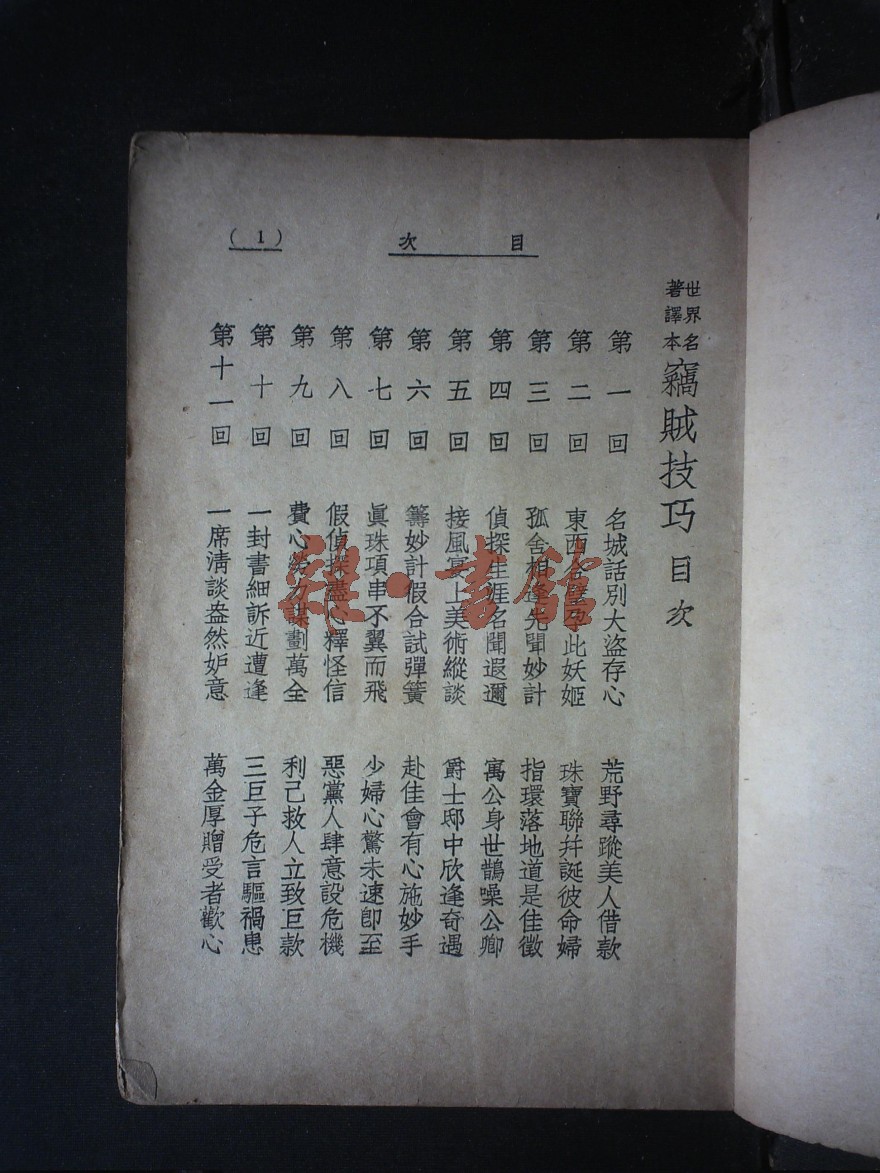 目次
(1)
世界名著譯本
竊賊技巧 目次
第一回 名城話別大盜存心 荒野尋蹤美人借款
第二回 東西合璧孕此妖姬 珠寶聯幷誕彼命婦
第三回 孤舍相逢先聞妙計 指環落地道是佳徵
第四回 偵探生涯名聞遐邇 寓公身世鵲噪公卿
第五回 接風宴上美術縱談 爵士邸中欣逢奇遇
第六回 籌妙計假合試彈簧 赴佳會有心施妙手
第七回 眞珠項串不翼而飛 少婦心驚未速卽至
第八回 假偵探盡心釋怪信 惡黨人肆意設危機
第九回 費心勞力謀劃萬全 利己救人立致巨款
第十回 一封書細訴近遭逢 三巨子危言驅禍患
第十一回 一席淸談盎然妒意 萬金厚贈受者歡心
雜·書館